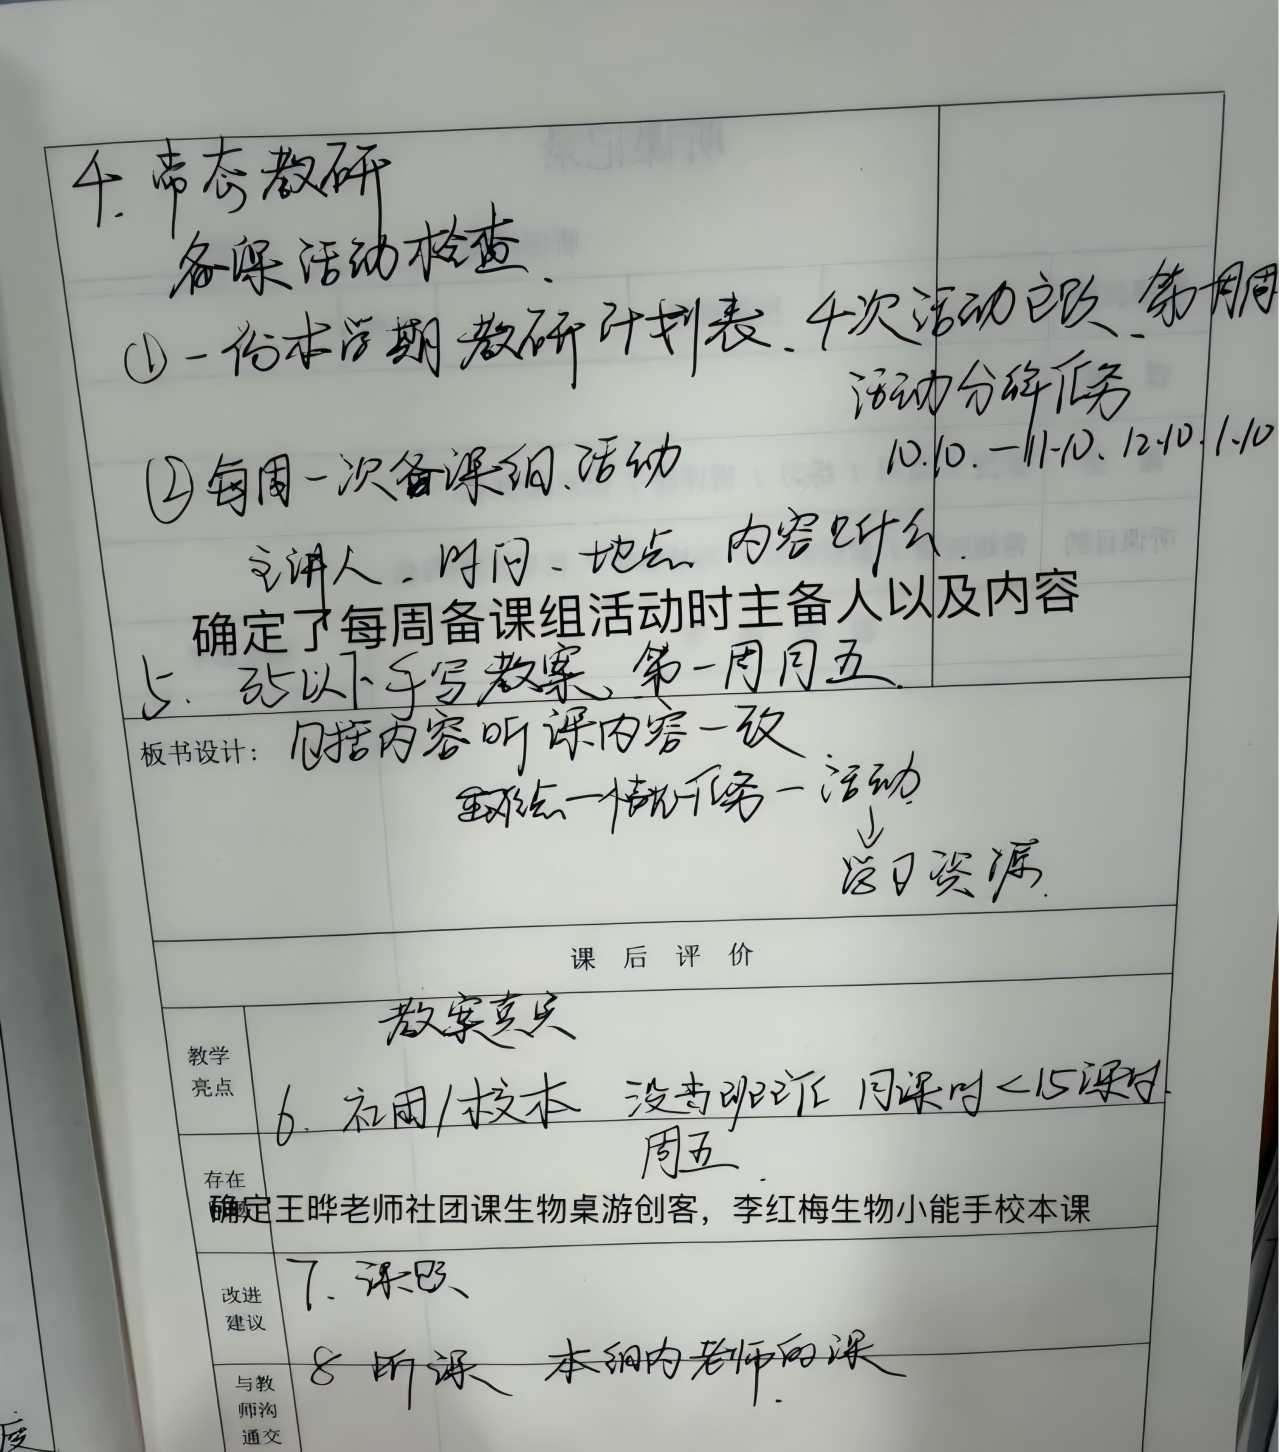 4. 常态教研
备课活动检查.
①一份本学期教研计划表、4次活动 第 周
活动分解任务
②每周一次备课组活动
10.10.—11.10、12.10、1.10
主讲人、时间、地点 内容是什么.
确定了每周备课组活动时主备人以及内容
5. 35以下手写教案、第一周周五.
板书设计: 包括内容听课内容一致
重难点—情境任务—活动
↓
学习资源.
课后评价
教案真实
教学
亮点
6. 社团/校本 没当班主任 周课时<15课时.
周五.
存在
确定王晔老师社团课生物桌游创客，李红梅生物小能手校本课
7. 课题
改进
建议
8 听课 本组内老师的课.
与教
师沟
通交
度